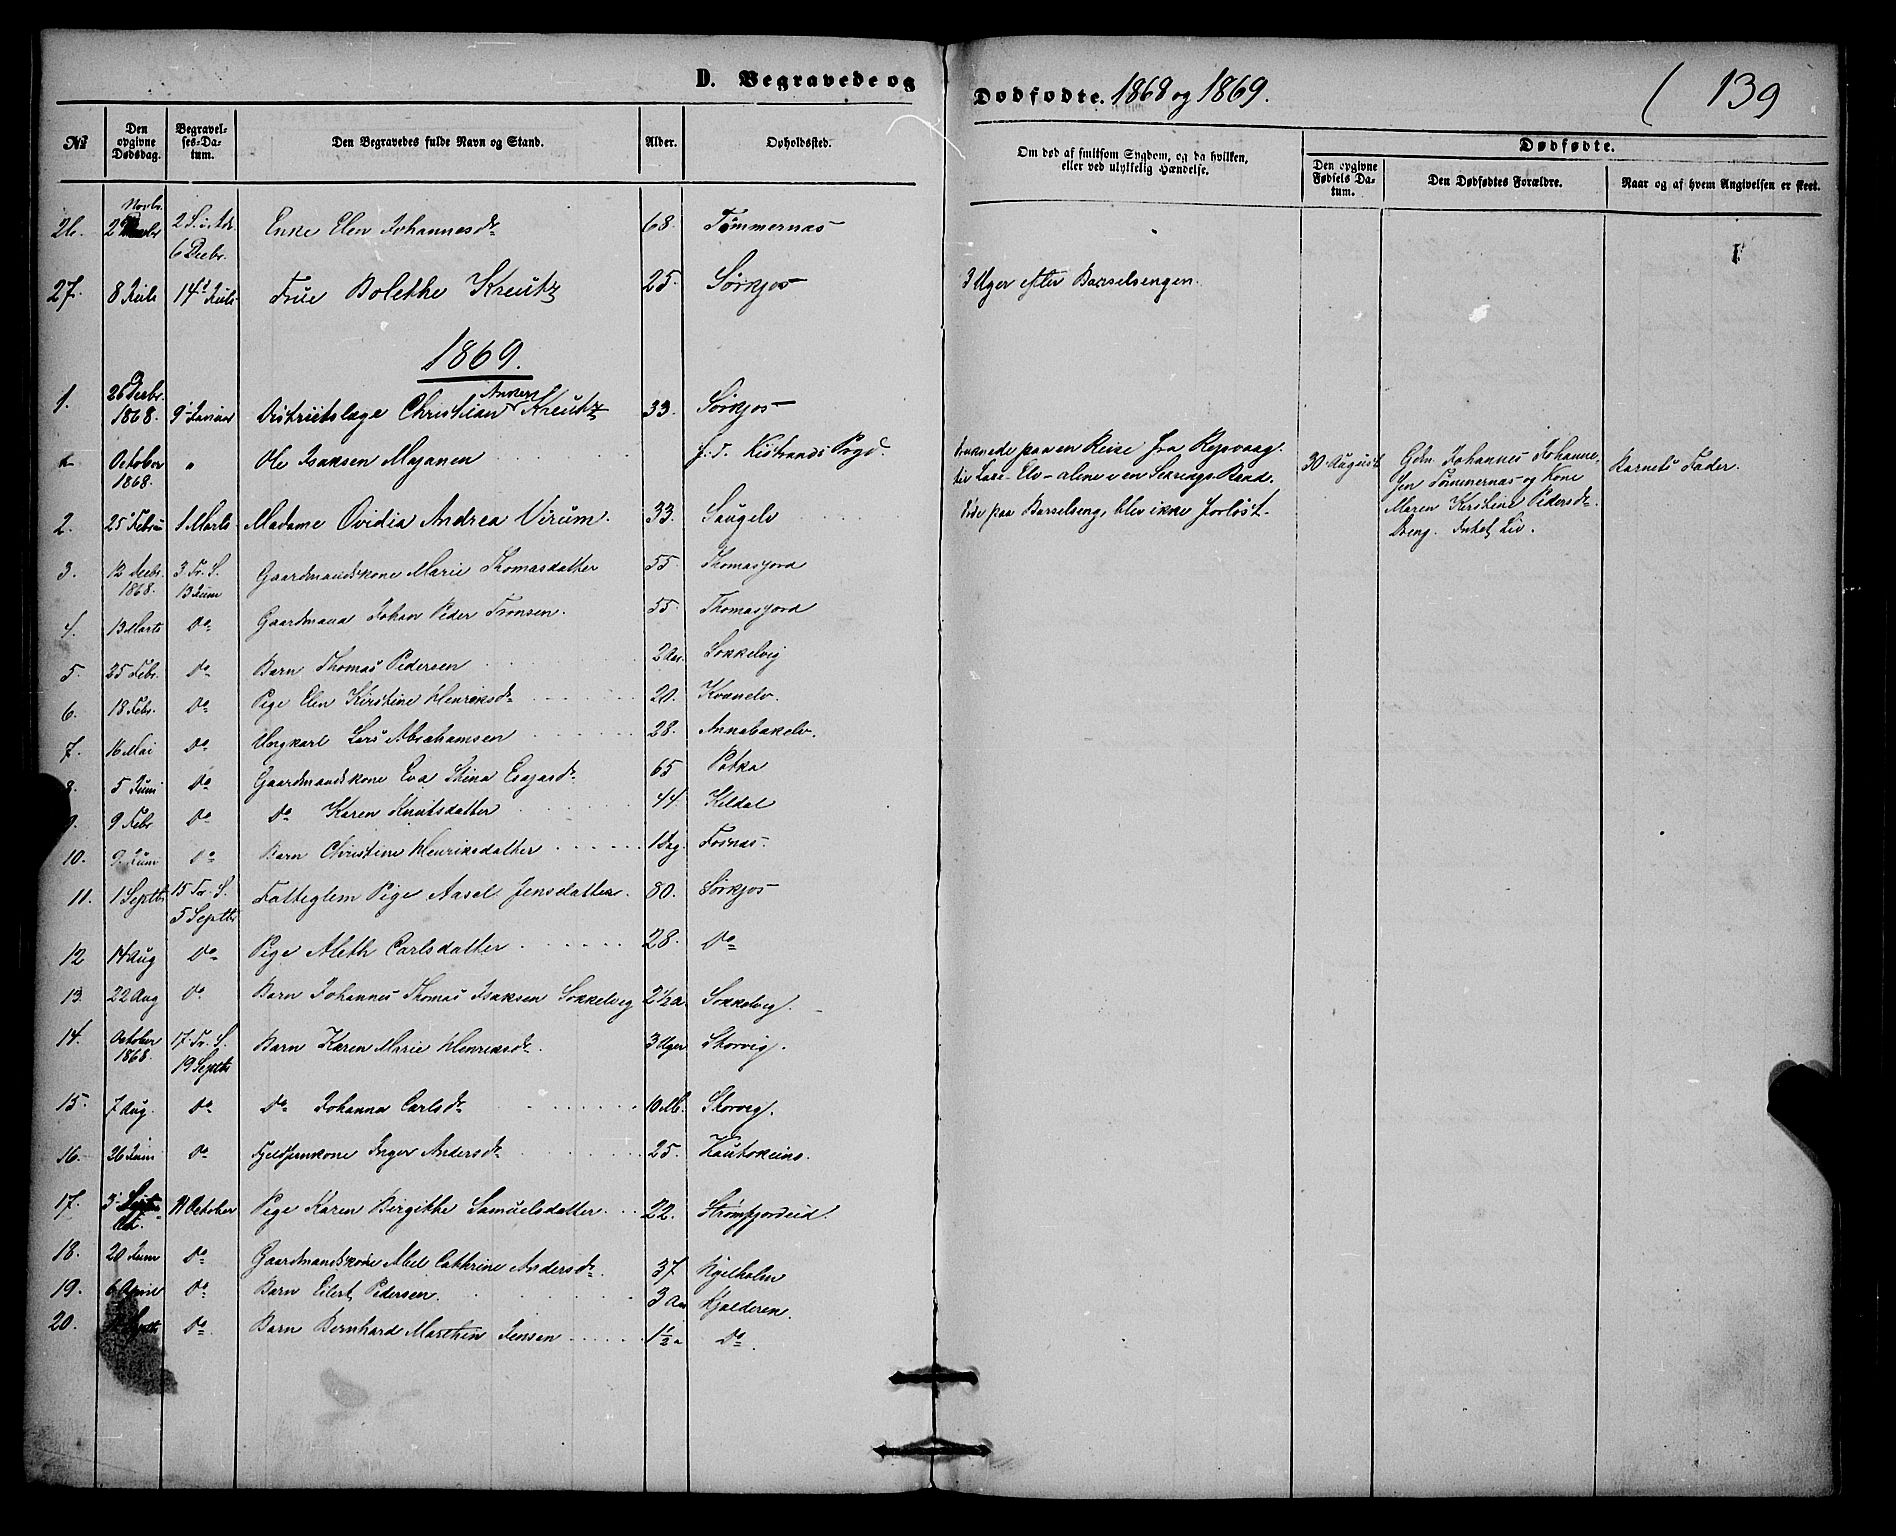 D. Begravede og
Dødfødte. 1868 og 1869.
139
No
Den opgivne Dødsdag.
Begravelses-Datum.
Den Begravedes fulde Navn og Stand.
Alder.
Opholdssted.
Om død af smitsom Sygdom, og da hvilken, eller ved ulykkelig Hændelse.
Dødfødte.
Den opgivne Fødsels Datum.
Den Dødfødtes Forældre.
Naar og af hvem Angivelsen er skeet.
26. Novbr. 2 S. i Adv. 6 Decbr. Enke Elen Johannesdr 68. Tømmernæs
27. 8 Juli 14 Juli Frue Bolethe Kreutz 25. Sørkjos
3 Uger efter Barselsengen.
1869.
1. 26 Decbr. 1868. 9 Januar Districtslæge Christian Anker Kreutz 33. Sørkjos
October 1868. " Ole Isaksen Majanen Kistrands Prgd.
druknede paa en Reise fra Repvaag
til Laxe-Elv - alene i en Baad.
30 August
Gdm. Johannes Johannesen Tømmernæs og Kone
Maren Kirstine Pedersdr.
Dreng. Intet Liv.
Barnets Fader.
2. 25 Febru 1 Marts Madame Ovidia Andrea Virum. 33. Saugelv
Døde paa Barselseng, blev ikke forløst.
3. 12 Decbr. 1868. 3 Tr. S. 13 Juni Gaardmandskone Marie Thomasdatter 55 Thomasjord
4. 13 Marts Do Gaardmand Johan Peder Tronsen. 55. Thomasjord
5. 25 Febr. Do Barn Thomas Pedersen 2 Aar. Sokkelvig
6. 18 Febr. Do Pige Elen Kirstine Henriksdr 20. Kvænelv.
7. 16 Mai Do Ungkarl Lars Abrahamsen 28. Annabakelv.
8. 5 Juni Do Gaardmandskone Eva Stina Esajasdr 65 Potka
9. 9 Febr Do Do Karen Knutsdatter 44. Kildal
10. 9 Juni Do Barn Christine Henriksdatter 1 Dag.
11. 1 Septbr 15 Tr. S. 5 Septbr Fatteglem Pige Aasel Jensdatter. 80. Sørkjos
12 14 Aug Do Pige Aleth Carlsdatter 28. Do
13. 22 Aug Do Barn Johannes Thomas Isaksen Sokkelvig 2 1/2 a Sokkelvig.
14. October 1868. 17 Tr. S. 19 Septbr Barn Karen Marie Henriksdr. 3 Uger Storvig.
15. 7 Aug. Do Do Johanna Carlsdr 10 M. Storvig.
16. 26 Juni Do Fjeldfinkone Inger Andersdr 25. Kautokeino.
17. 3 Oct. 11 October Pige Karen Birgitte Samuelsdatter 22. Strømfjordeid.
18. 20 Juni Do Gaardmandskone Abel Cathrine Andersdr. 37
19. 6 April Do Barn Eilert Pedersen. 3 Aar Hjelderen.
20. Do Barn Bernhard Marthin Jensen 1 1/2 a Do